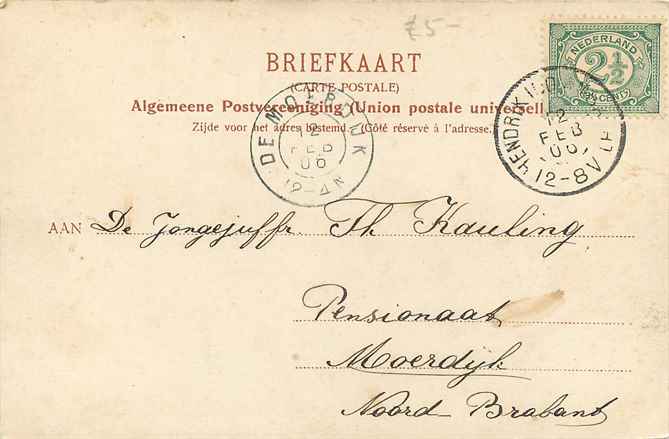 £5-
NEDERLAND
2½
CENT
BRIEFKAART
(CARTE POSTALE)
Algemeene Postvereeniging (Union postale universell
Zijde voor het adres bestemd. (Côté réservé à l'adresse.)
DE MOERDIJK
12
FEB
06
12-4N
HENDRIK
12
FEB
06
12-8V
AAN De Jongejuffr. Th Kauling
Pensionaat
Moerdijk
Noord Brabant